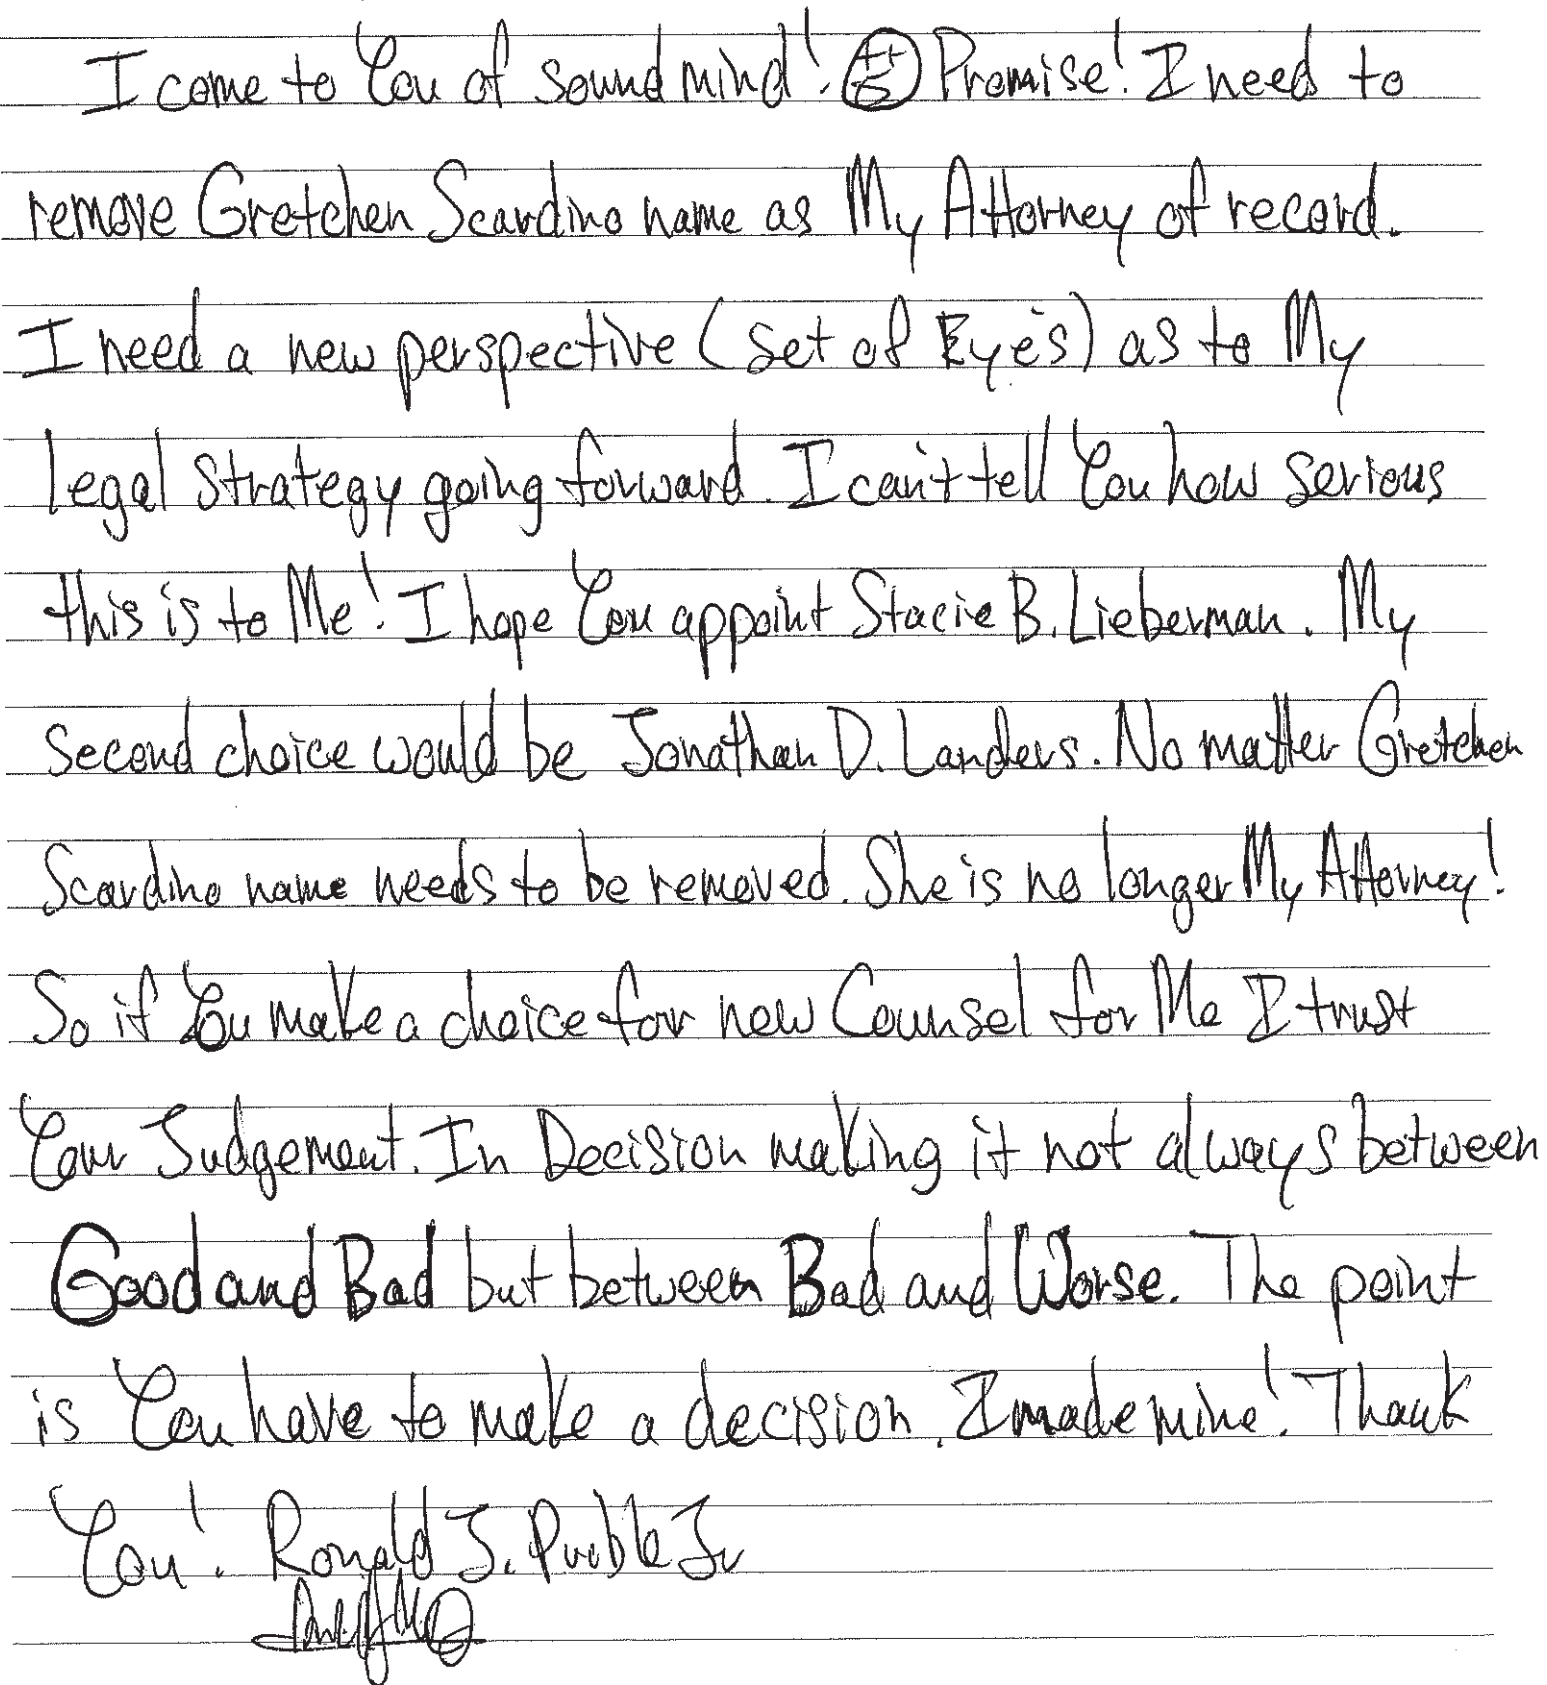 I come to You of sound mind! Promise! I need to
remove Gretchen Scardino name as My Attorney of record.
I need a new perspective (set of Eye's) as to My
legal strategy going forward. I can't tell You how serious
this is to Me! I hope You appoint Stacie B. Lieberman. My
second choice would be Jonathan D. Landers. No matter Gretchen
Scardino name needs to be removed. She is no longer My Attorney!
So if You make a choice for new Counsel for Me I trust
Your Judgement. In Decision making it not always between
Good and Bad but between Bad and Worse. The point
is You have to make a decision. I made mine! Thank
You! Ronald J. Prible Jr